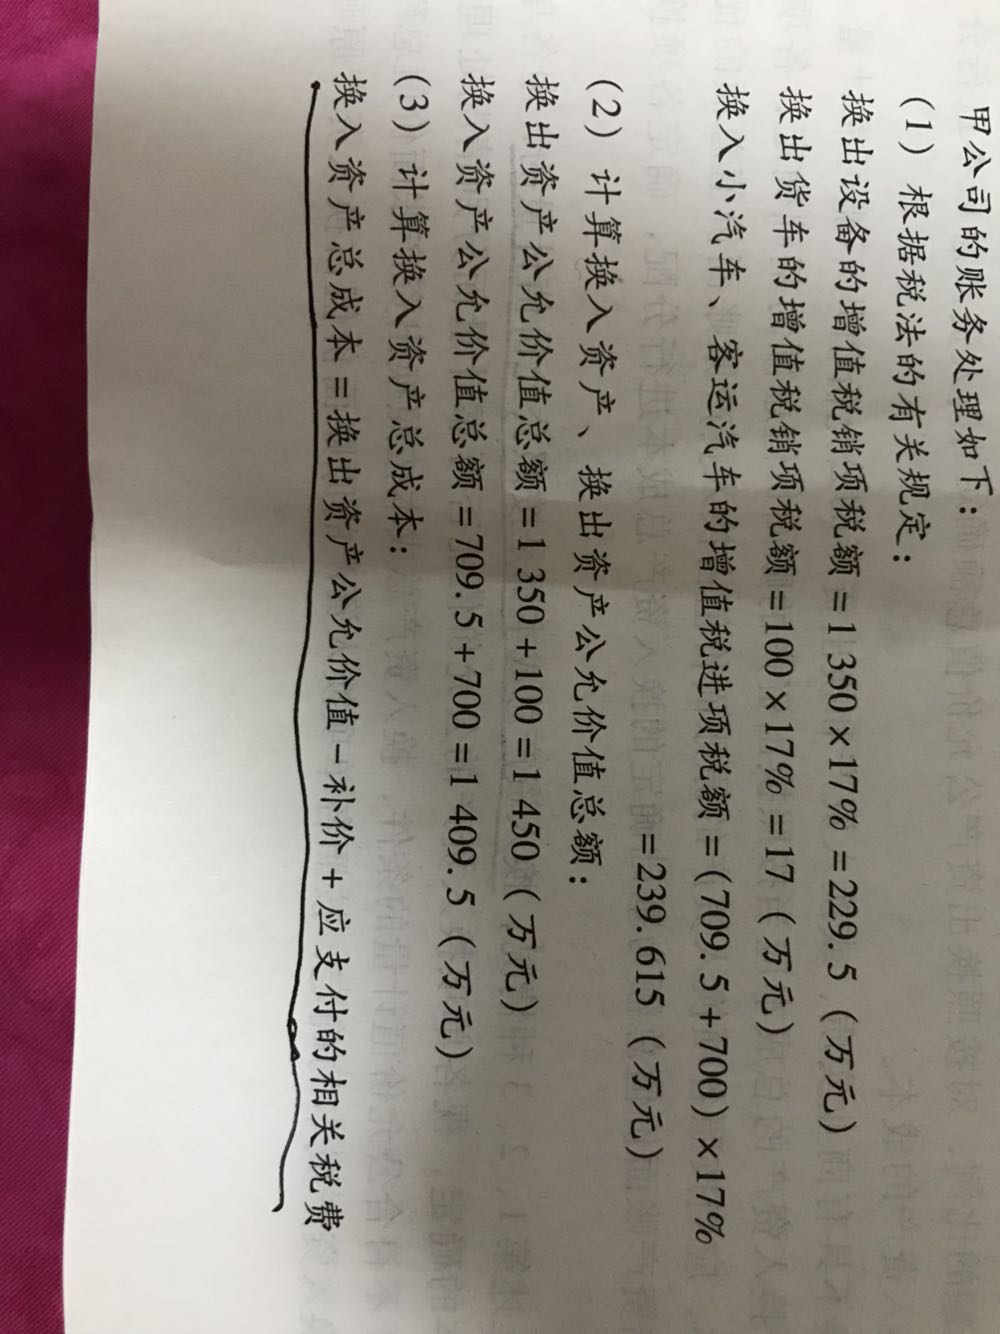 甲公司的账务处理如下：
（1）根据税法的有关规定：
换出设备的增值税销项税额=1 350×17% =229.5（万元）
换出货车的增值税销项税额=100×17% =17（万元）
换入小汽车、客运汽车的增值税进项税额=(709.5+700)×17%
=239.615（万元）
（2）计算换入资产、换出资产公允价值总额：
换出资产公允价值总额=1 350+100=1 450（万元）
换入资产公允价值总额=709.5+700=1 409.5（万元）
（3）计算换入资产总成本：
换入资产总成本=换出资产公允价值-补价+应支付的相关税费